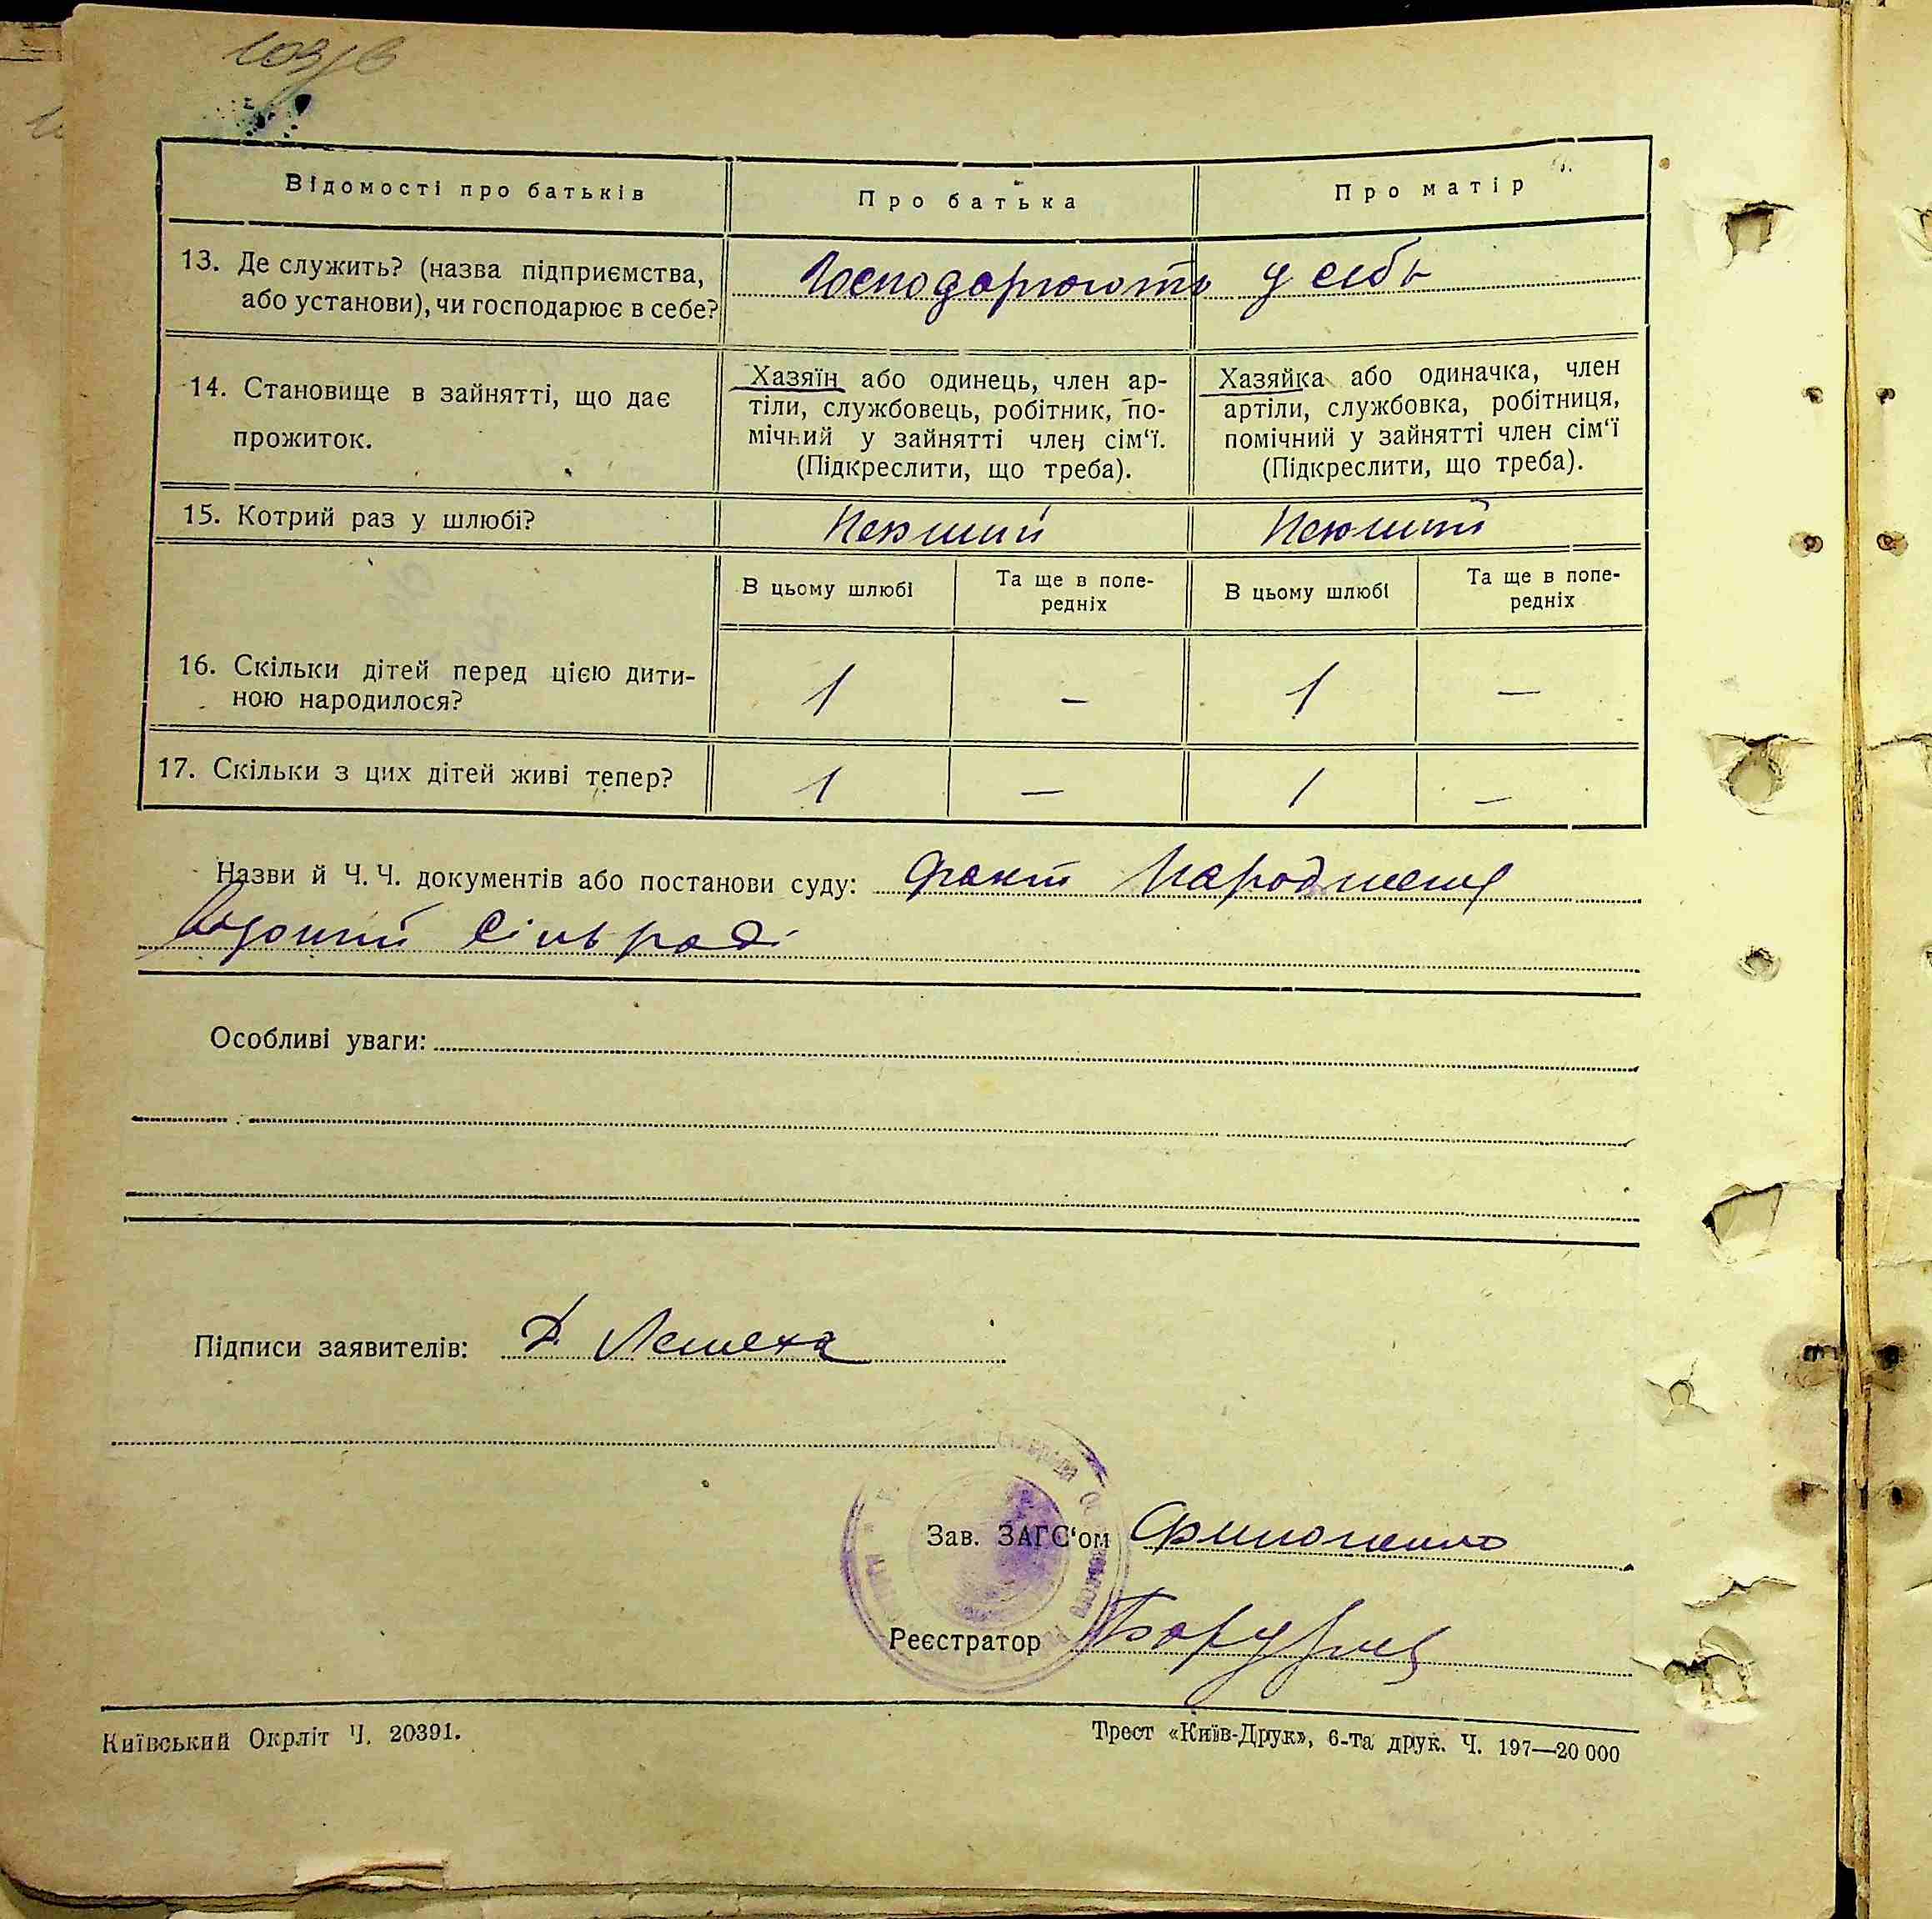 103/в
Відомості про батьків
Про батька
Про матір
13. Де служить? (назва підприємства,
або установи), чи господарює в себе?
Господарюють у себь
14. Становище в зайнятті, що дає
прожиток.
Хазяїн або одинець, член ар-
тіли, службовець, робітник, по-
мічний у зайнятті член сім'ї.
(Підкреслити, що треба).
Хазяйка або одиначка, член
артіли, службовка, робітниця,
помічний у зайнятті член сім'ї
(Підкреслити, що треба).
15. Котрий раз у шлюбі?
Перший
Перший
В цьому шлюбі
Та ще в попе-
редніх
В цьому шлюбі
Та ще в попе-
редніх
16. Скільки дітей перед цією дити-
ною народилося?
1 — 1 —
17. Скільки з цих дітей живі тепер?
1 — 1 —
Назви й Ч. Ч. документів або постанови суду: Факт народження
відомий сільраді
Особливі уваги:
Підписи заявителів:
Зав. ЗАГС'ом
Реєстратор
Київський Окрліт Ч. 20391.
Трест «Київ-Друк», 6-та друк. Ч. 197—20 000